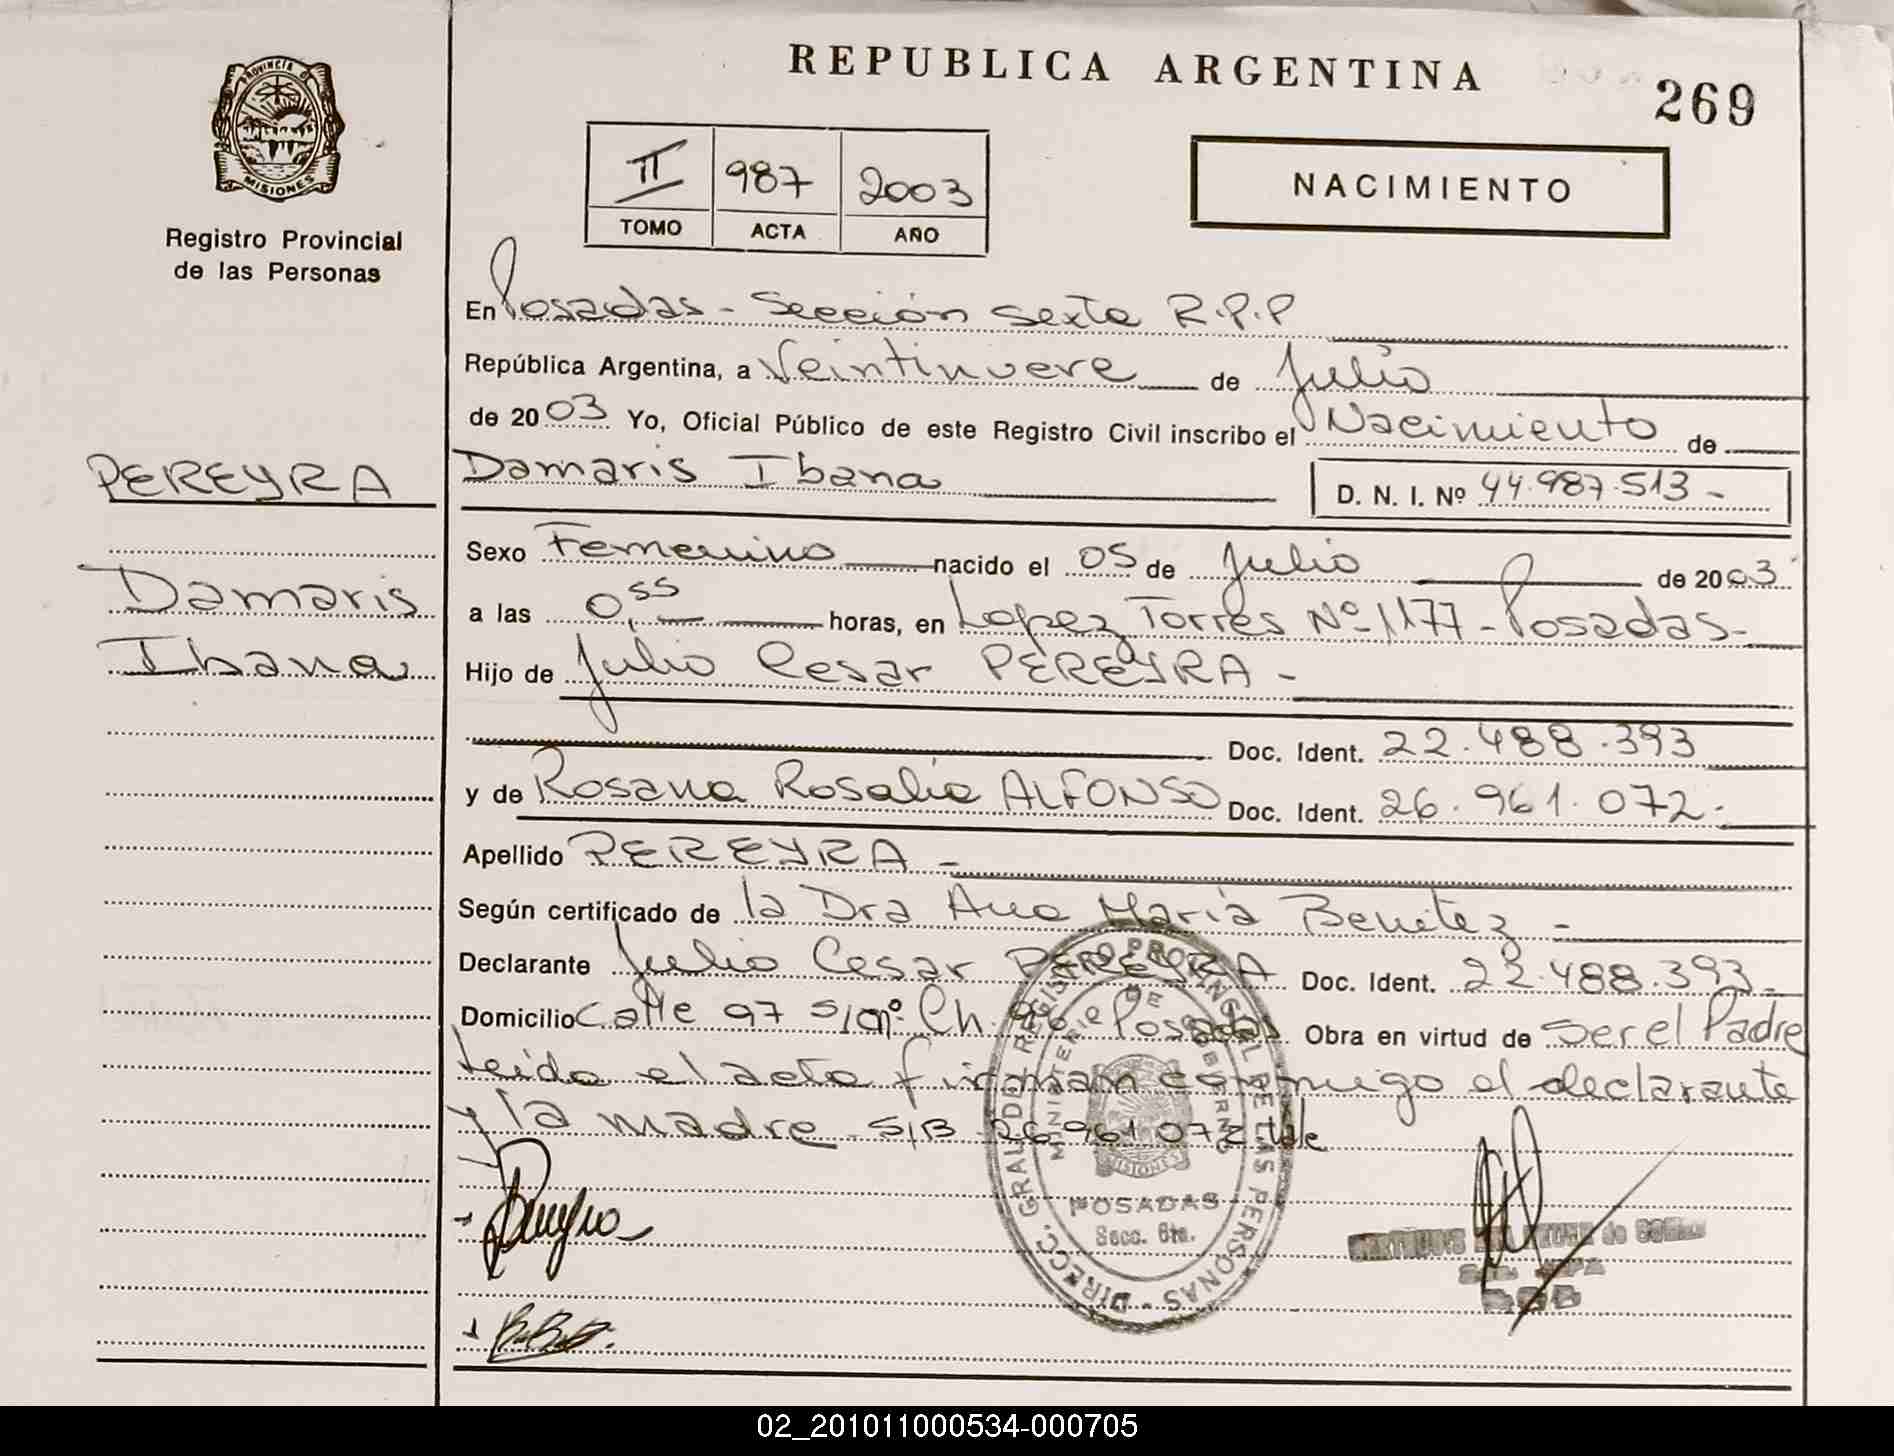 REPUBLICA ARGENTINA
269
PROVINCIA D
MISIONES
Registro Provincial
de las Personas
II 987 2003
TOMO ACTA AÑO
NACIMIENTO
En Posadas - Sección Sexta R.P.P
República Argentina, a Veintinueve de Julio
de 2003 Yo, Oficial Público de este Registro Civil inscribo el Nacimiento de
PEREYRA
Damaris Ibana
D. N. I. Nº 44.987.513 -
Damaris
Ibana
Sexo Femenino nacido el 05 de Julio de 2003
a las 0,55 horas, en Lopez Torres Nº 1177 - Posadas -
Hijo de Julio Cesar PEREYRA -
Doc. Ident. 22.488.393
y de Rosana Rosalia ALFONSO Doc. Ident. 26.961.072 -
Apellido PEREYRA -
Según certificado de la Dra Ana María Benitez -
Declarante Julio Cesar PEREYRA Doc. Ident. 22.488.393 -
Domicilio Calle 97 S/nº Ch. 96 Posadas Obra en virtud de ser el Padre
leido el acta firman conmigo el declarante
y la madre S/B 26.961.072 Vale
DIRECC. GRAL DE REGISTRO PROVINCIAL DE LAS PERSONAS
MINISTERIO DE GOBIERNO
MISIONES
POSADAS
Secc. 6ta.
02_201011000534-000705